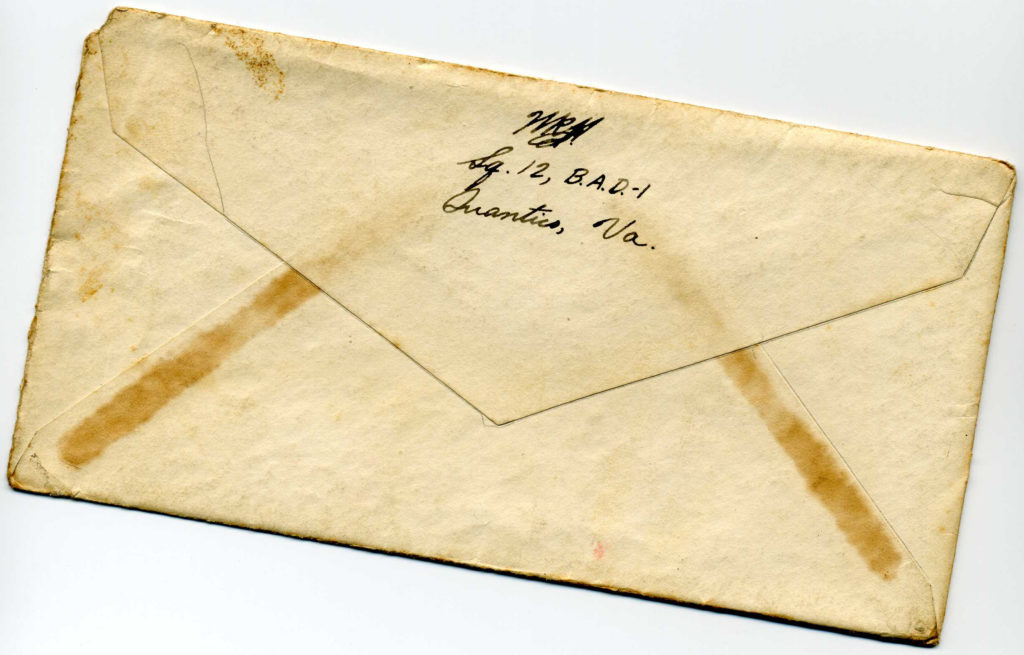 WRH
Sq. 12, B.A.D.-1
Quantico, Va.